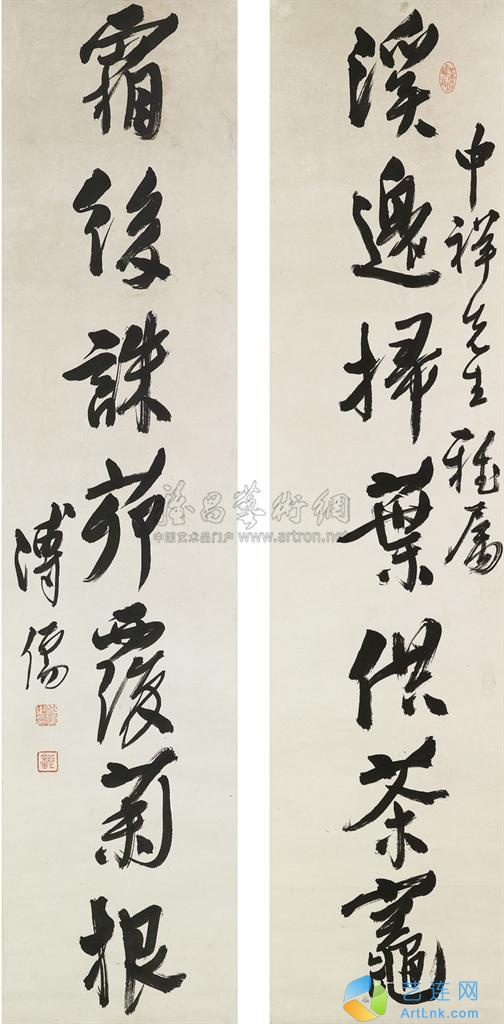 中祥先生雅屬
溪邊掃葉供茶竈
霜後誅茆覆菊根
溥儒
雅昌藝術網
中国艺术品门户 www.artron.net
艺连网
ArtLnk.com